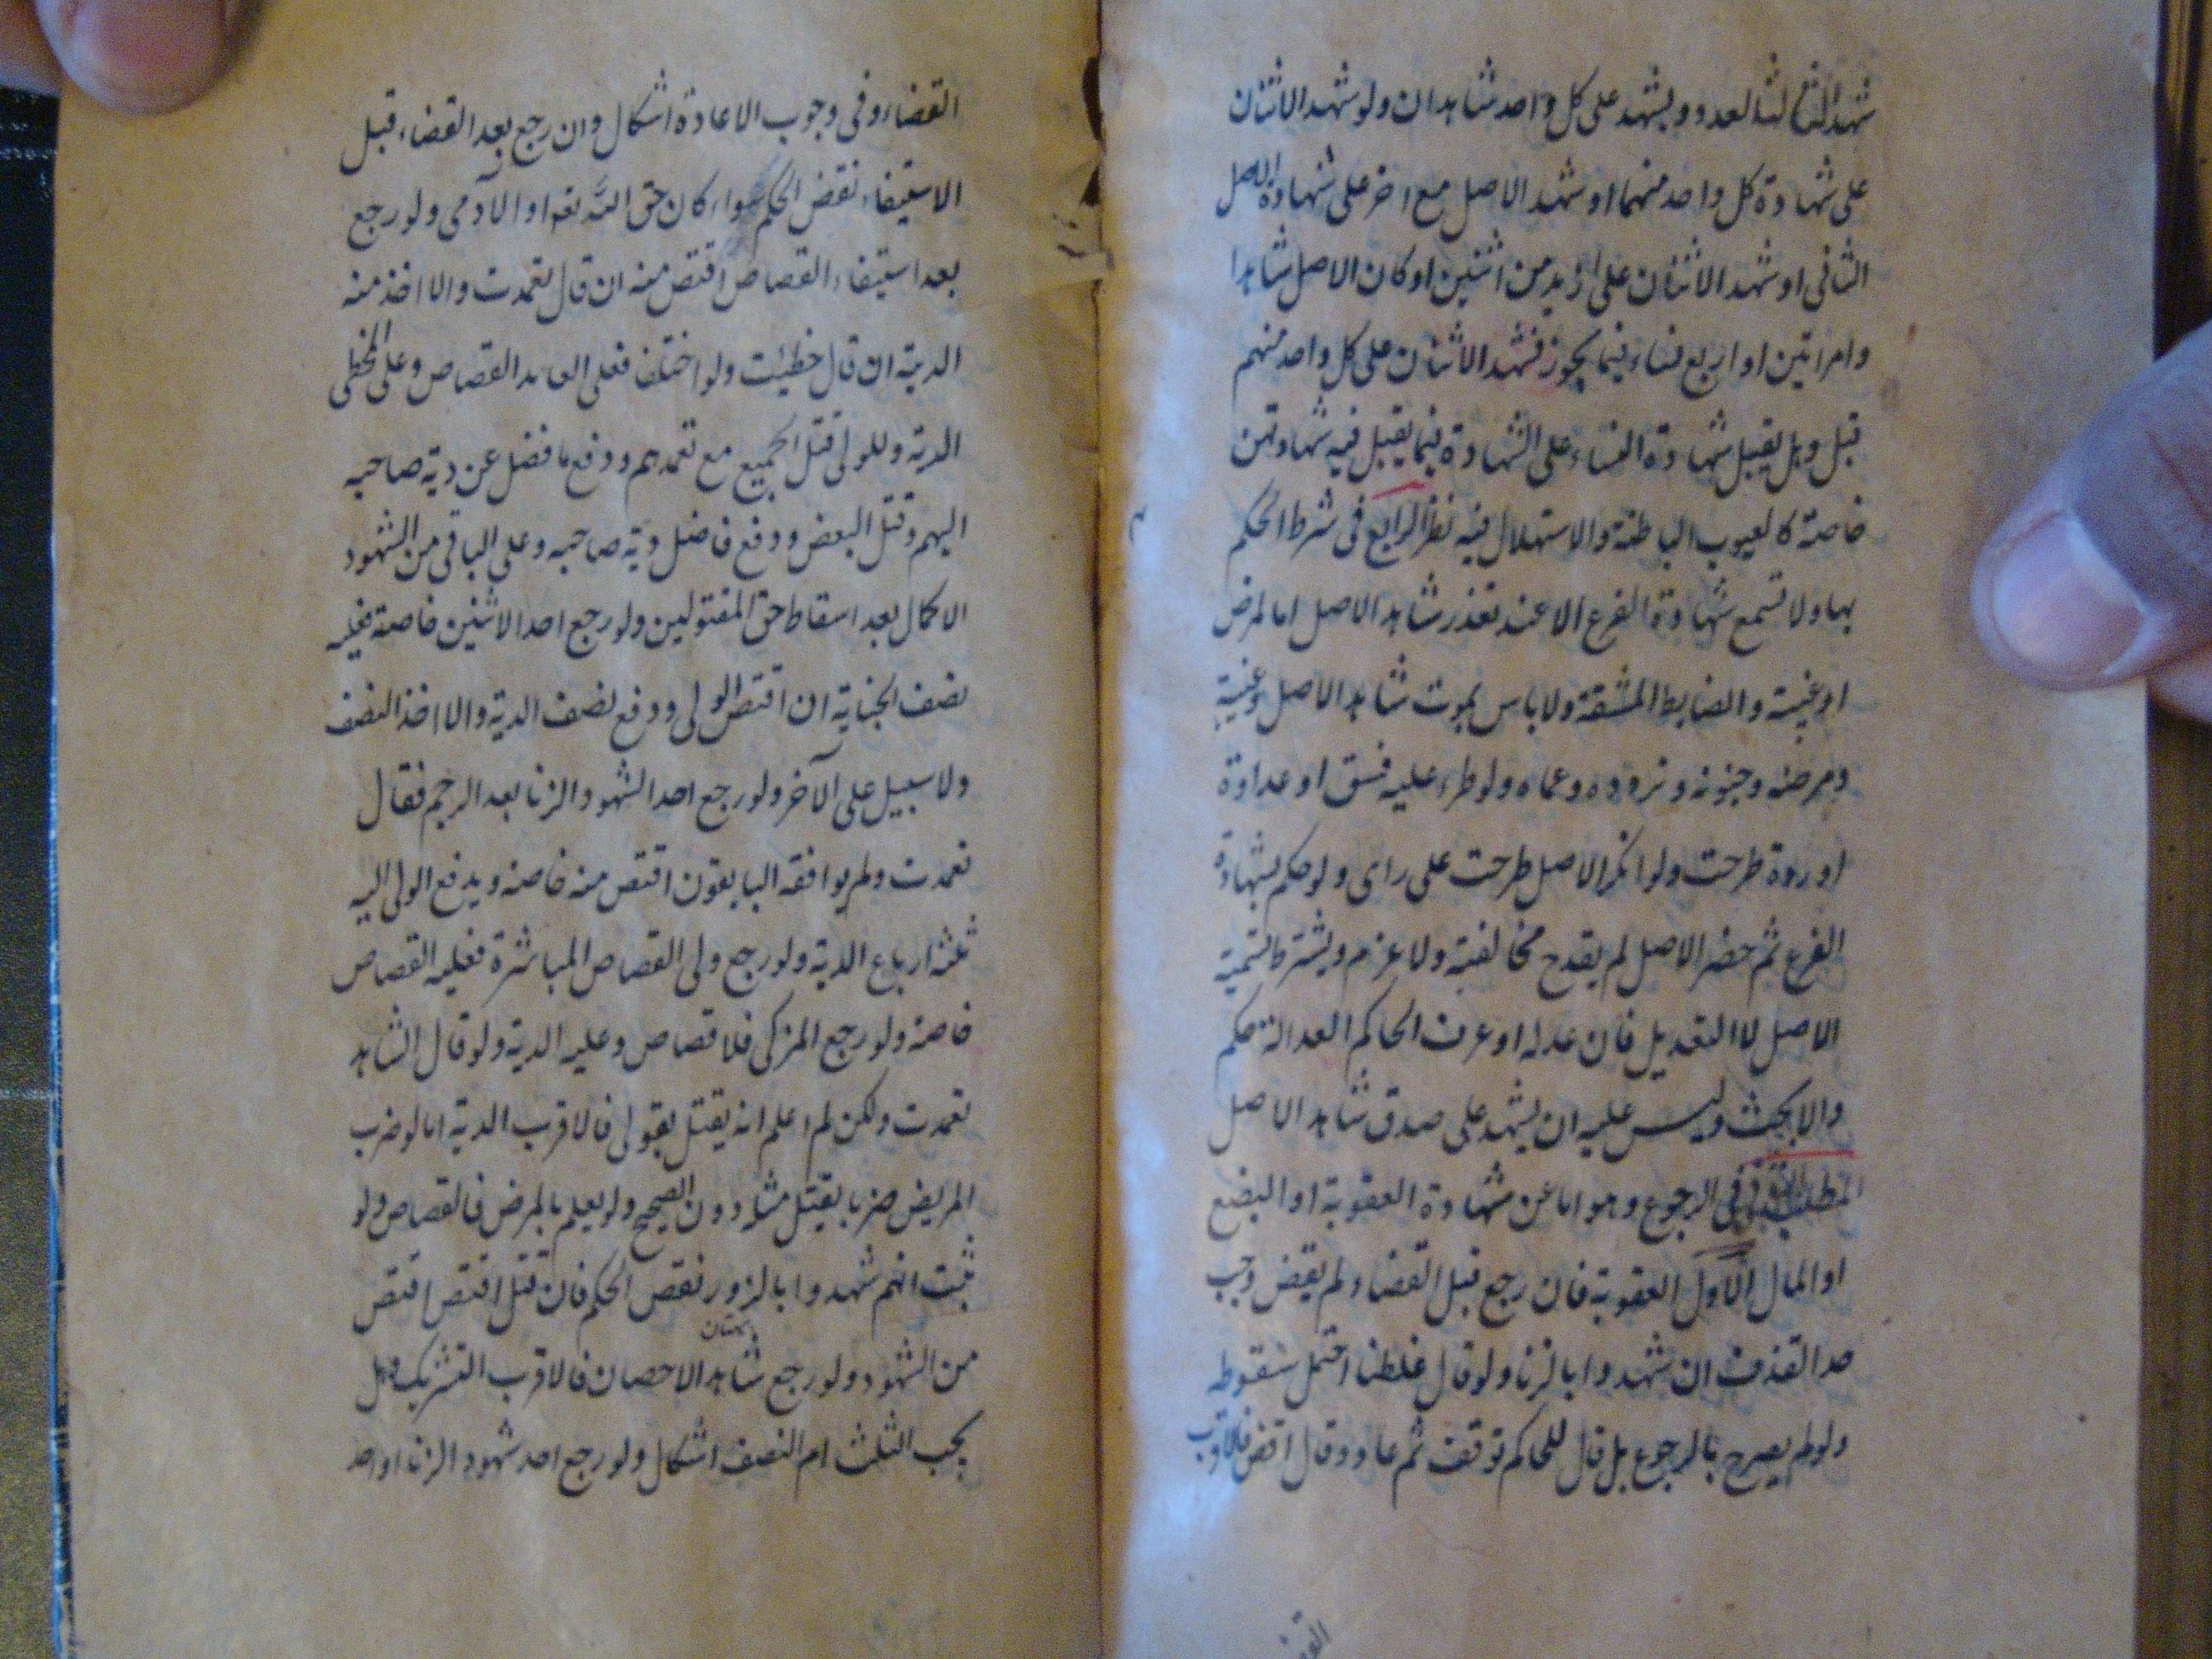 شهد الثالث العدد ويشهد على كل واحد شاهدان ولو شهد الاثنان
على شهادة كل واحد منهما او شهد الاصل مع اخر على شهادة الاصل
الثانى او شهد الاثنان على ازيد من اثنين او كان الاصل شاهدا
وامراتين او اربع نساء فيما يجوز فشهد الاثنان على كل واحد منهم
قبل وهل يقبل شهادة النساء على الشهادة فيما يقبل فيه شهادتهن
خاصة كالعيوب الباطنة والاستهلال فيه نظر الرابع فى شرط الحكم
بها ولا تسمع شهادة الفرع الا عند تعذر شاهد الاصل اما لمرض
او غيبة والضابط المشقة ولا باس بموت شاهد الاصل وغيبته
ومرضه وجنونه وتردده وعماه ولو طرء عليه فسق او عداوة
او ردة طرحت ولو انكر الاصل طرحت على راى ولو حكم بشهادة
الفرع ثم حضر الاصل لم يقدح مخالفته ولا غرم ويشترط تسمية
الاصل لا التعديل فان عدله او عرف الحاكم العدالة حكم
والا بحث وليس عليه ان يشهد على صدق شاهد الاصل
المطلب فى الرجوع وهو اما عن شهادة العقوبة او البضع
او المال الاول العقوبة فان رجع قبل القضاء لم يقض وجب
حد القذف ان شهدوا بالزنا ولو قال غلطنا احتمل سقوطه
ولو لم يصرح بالرجوع بل قال للحاكم توقف ثم عاد وقال اقض فالاقرب
القضا
القضاء وفى وجوب الاعادة اشكال وان رجع بعد القضاء قبل
الاستيفاء نقض الحكم سواء كان حق الله تعم او الآدمى ولو رجع
بعد استيفاء القصاص اقتص منه ان قال تعمدت والا اخذ منه
الدية ان قال خطيئت ولو اختلف فعلى العامد القصاص وعلى المخطى
الدية وللولى قتل الجميع مع تعمدهم ودفع ما فضل عن دية صاحبه
اليهم وقتل البعض ودفع فاضل دية صاحبه وعلى الباقى من الشهود
الاكمال بعد اسقاط حق المقتولين ولو رجع احد الاثنين خاصة فعليه
نصف الجناية ان اقتص الولى ودفع نصف الدية والا اخذ النصف
ولا سبيل على الآخر ولو رجع احد الشهود الزنا بعد الرجم فقال
تعمدت ولم يوافقه الباقون اقتص منه خاصة ويدفع الولى اليه
ثلثة ارباع الدية ولو رجع ولى القصاص المباشرة فعليه القصاص
خاصة ولو رجع المزكى فلا قصاص وعليه الدية ولو قال الشاهد
تعمدت ولكن لم اعلم انه يقتل بقولى فالاقرب الدية اما لو ضرب
المريض ضربا يقتل مثله دون الصحيح ولو يعلم بالمرض فالقصاص ولو
ثبت انهم شهدوا بالزور نقض الحكم فان قتل اقتص اقتص
من الشهود ولو رجع شاهد الاحصان فالاقرب التشريك وهل
يجب الثلث ام النصف اشكال ولو رجع احد شهود الزنا او احد